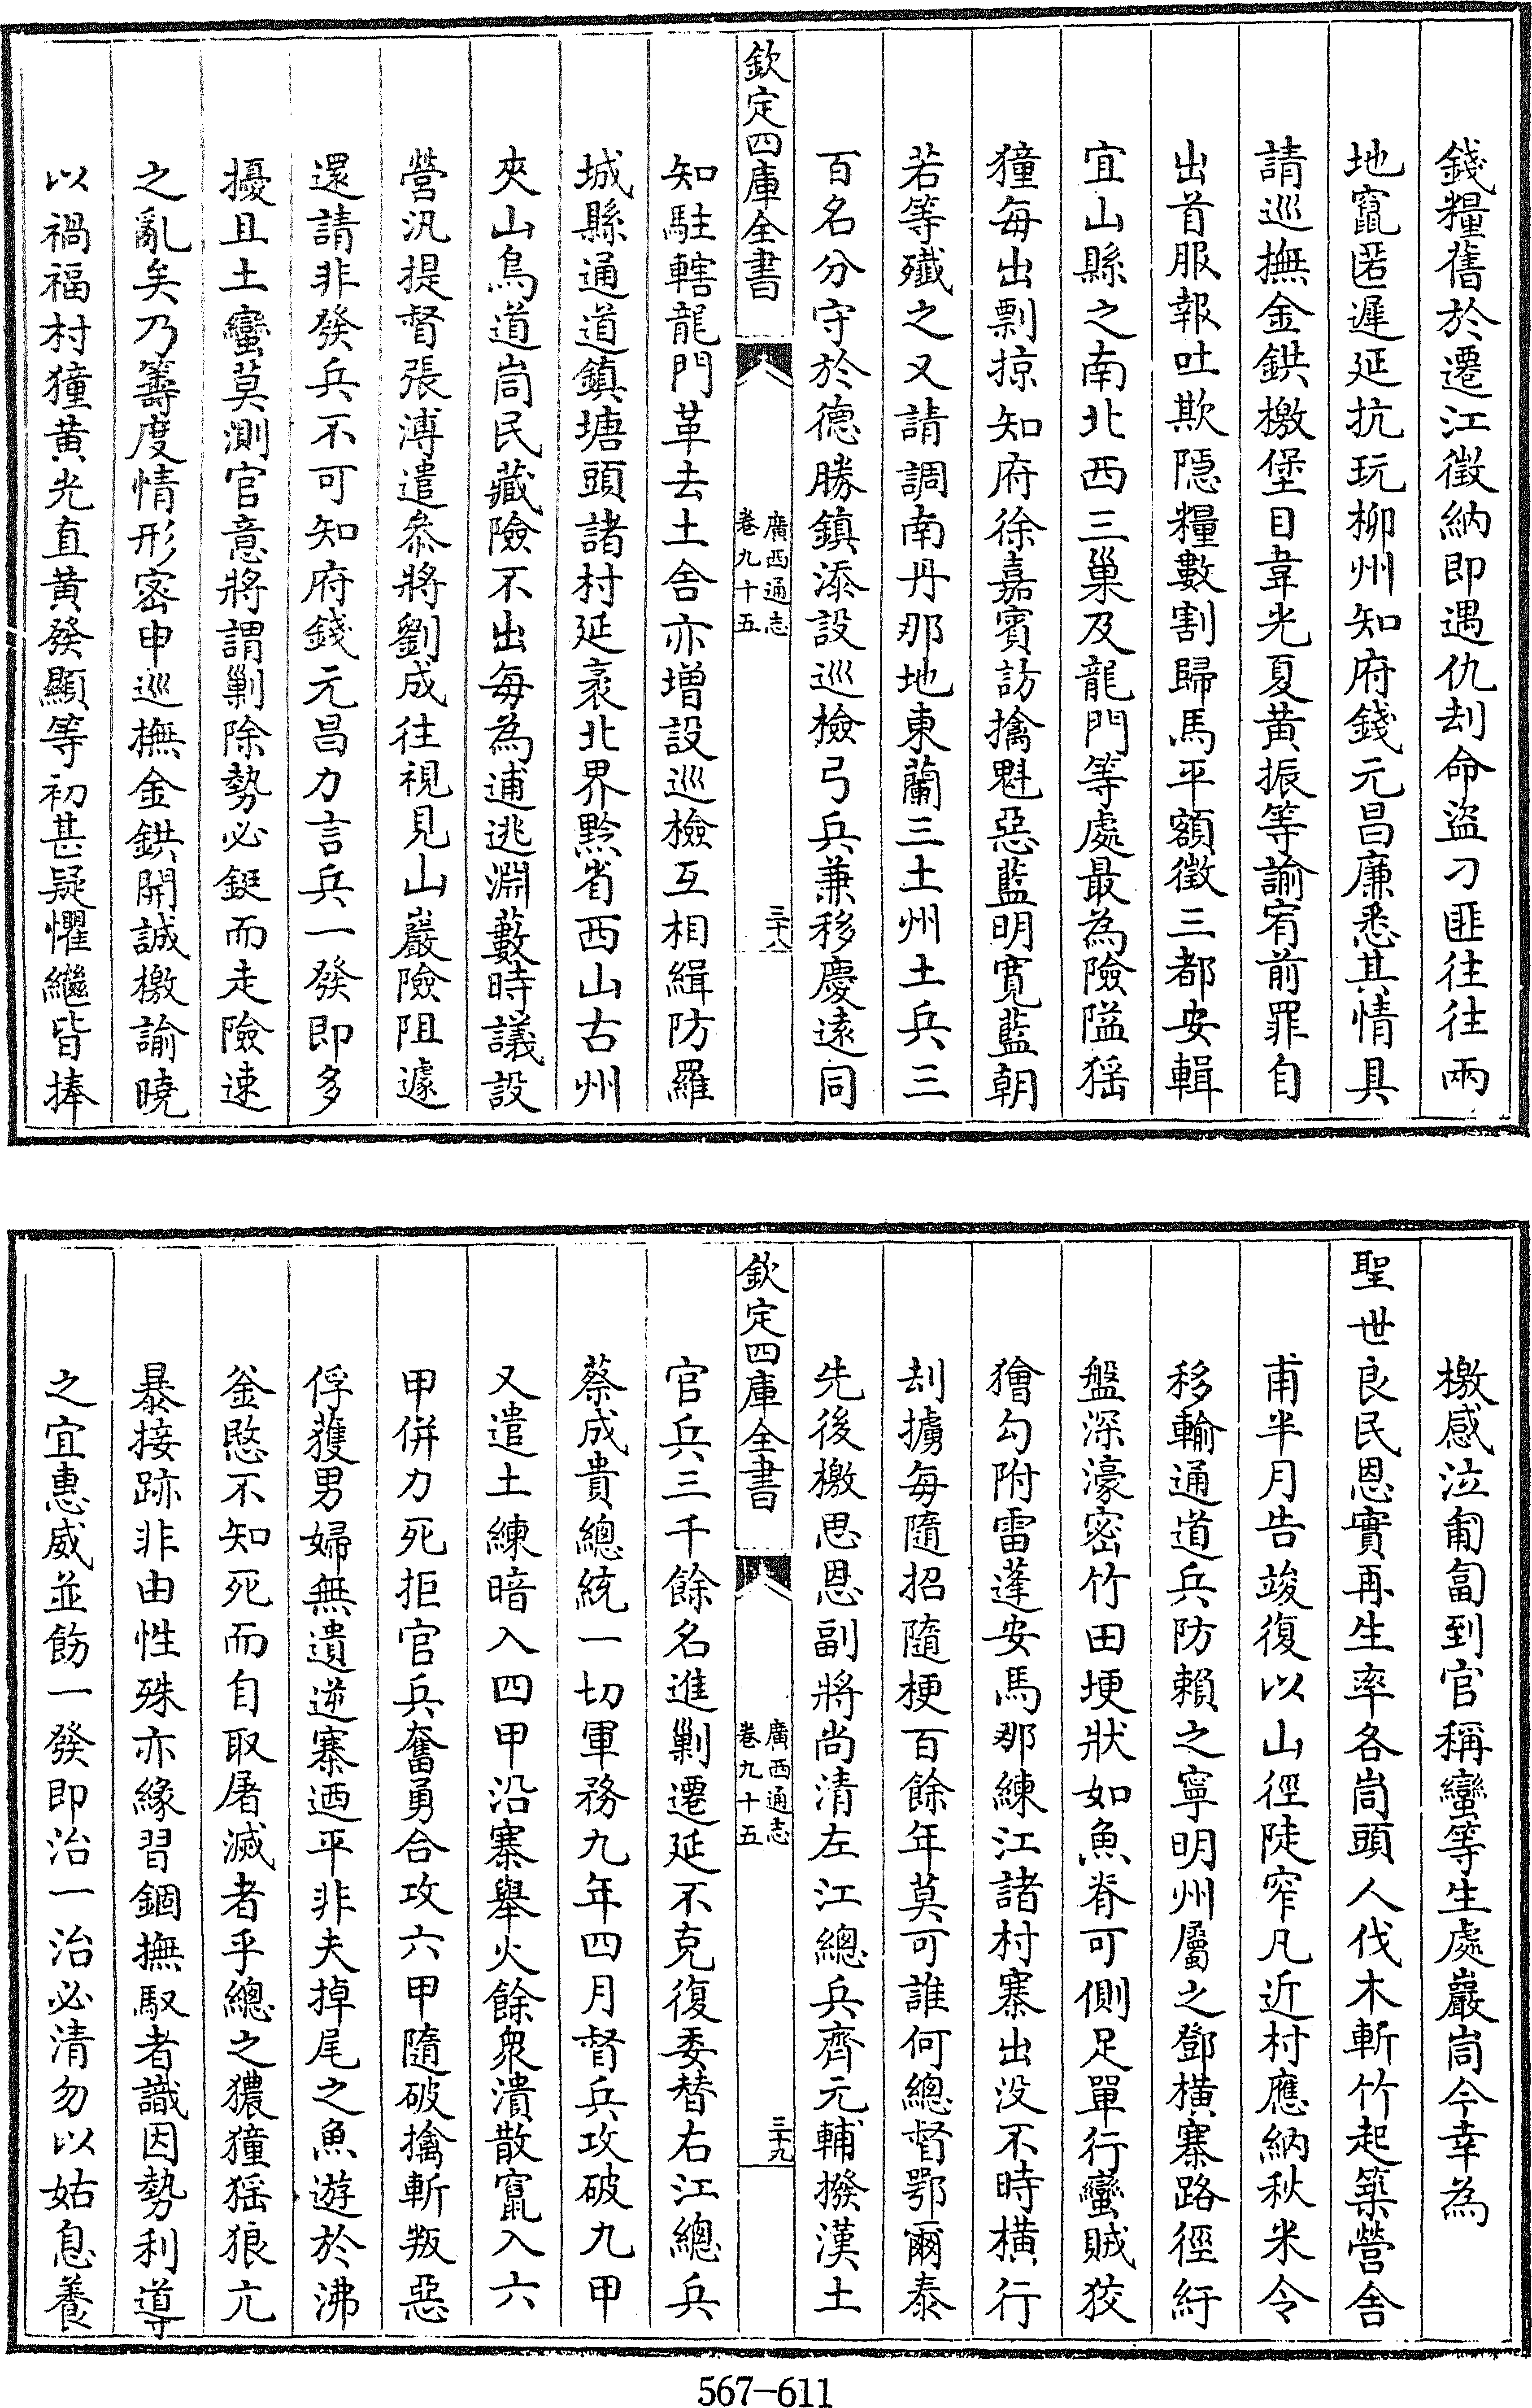 錢糧舊於遷江徵納即遇仇刦命盜刁匪往往兩
地竄匿遲延抗玩柳州知府錢元昌廉悉其情具
請巡撫金鉷檄堡目韋光夏黄振等諭宥前罪自
出首服報吐欺隠糧數割歸馬平額徵三都安輯
宜山縣之南北西三巢及龍門等處最為險隘猺
獞每出剽掠知府徐嘉賓訪擒魁惡藍明寛藍朝
若等殱之又請調南丹那地東蘭三土州土兵三
百名分守於德勝鎮添設巡檢弓兵兼移慶遠同
欽定四庫全書
廣西通志
卷九十五
三十八
知駐轄龍門革去土舍亦增設巡檢互相緝防羅
城縣通道鎮塘頭諸村延袤北界黔省西山古州
夾山鳥道峝民藏險不出每為逋逃淵藪時議設
營汛提督張溥遣叅將劉成往視見山巖險阻遽
還請非發兵不可知府錢元昌力言兵一發即多
擾且土蠻莫測官意將謂剿除勢必鋌而走險速
之亂矣乃籌度情形密申巡撫金鉷開誠檄諭曉
以禍福村獞黄光直黄發顯等初甚疑懼繼皆捧
檄感泣匍匐到官稱蠻等生處巖峝今幸為
聖世良民恩實再生率各峝頭人伐木斬竹起築營舍
甫半月告竣復以山徑陡窄凡近村應納秋米令
移輸通道兵防賴之寧明州屬之鄧橫寨路徑紆
盤深濠密竹田埂狀如魚脊可側足單行蠻賊狡
獪勾附雷蓬安馬那練江諸村寨出没不時橫行
刦擄每隨招隨梗百餘年莫可誰何總督鄂爾泰
先後檄思恩副將尚清左江總兵齊元輔撥漢土
欽定四庫全書
廣西通志
卷九十五
三十九
官兵三千餘名進剿遷延不克復委替右江總兵
蔡成貴總統一切軍務九年四月督兵攻破九甲
又遣土練暗入四甲沿寨舉火餘衆潰散竄入六
甲併力死拒官兵奮勇合攻六甲隨破擒斬叛惡
俘獲男婦無遺逆寨迺平非夫掉尾之魚遊於沸
釡愍不知死而自取屠滅者乎總之獽獞猺狼亢
暴接跡非由性殊亦緣習錮撫馭者識因勢利導
之宜惠威並飭一發即治一治必清勿以姑息養
567-611